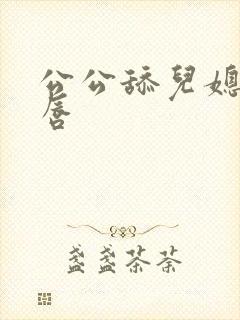 公公舔兒媳
唇
盏盏茶茶